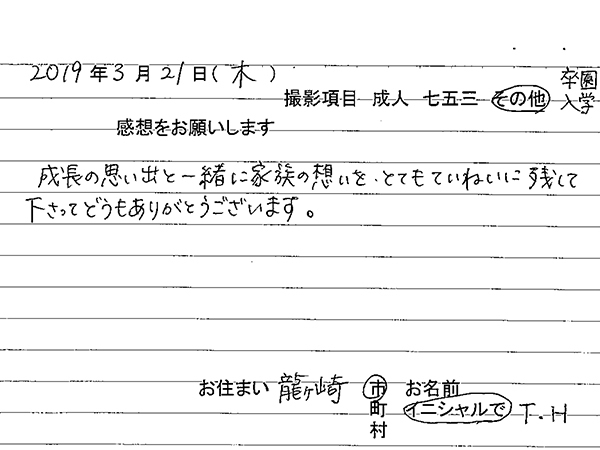 2019年3月21日(木)
撮影項目 成人 七五三 その他 卒園
入学
感想をお願いします
成長の思い出と一緒に家族の想いを、とてもていねいに残して
下さってどうもありがとうございます。
お住まい 龍ヶ崎 市 お名前
町 イニシャルで T.H
村